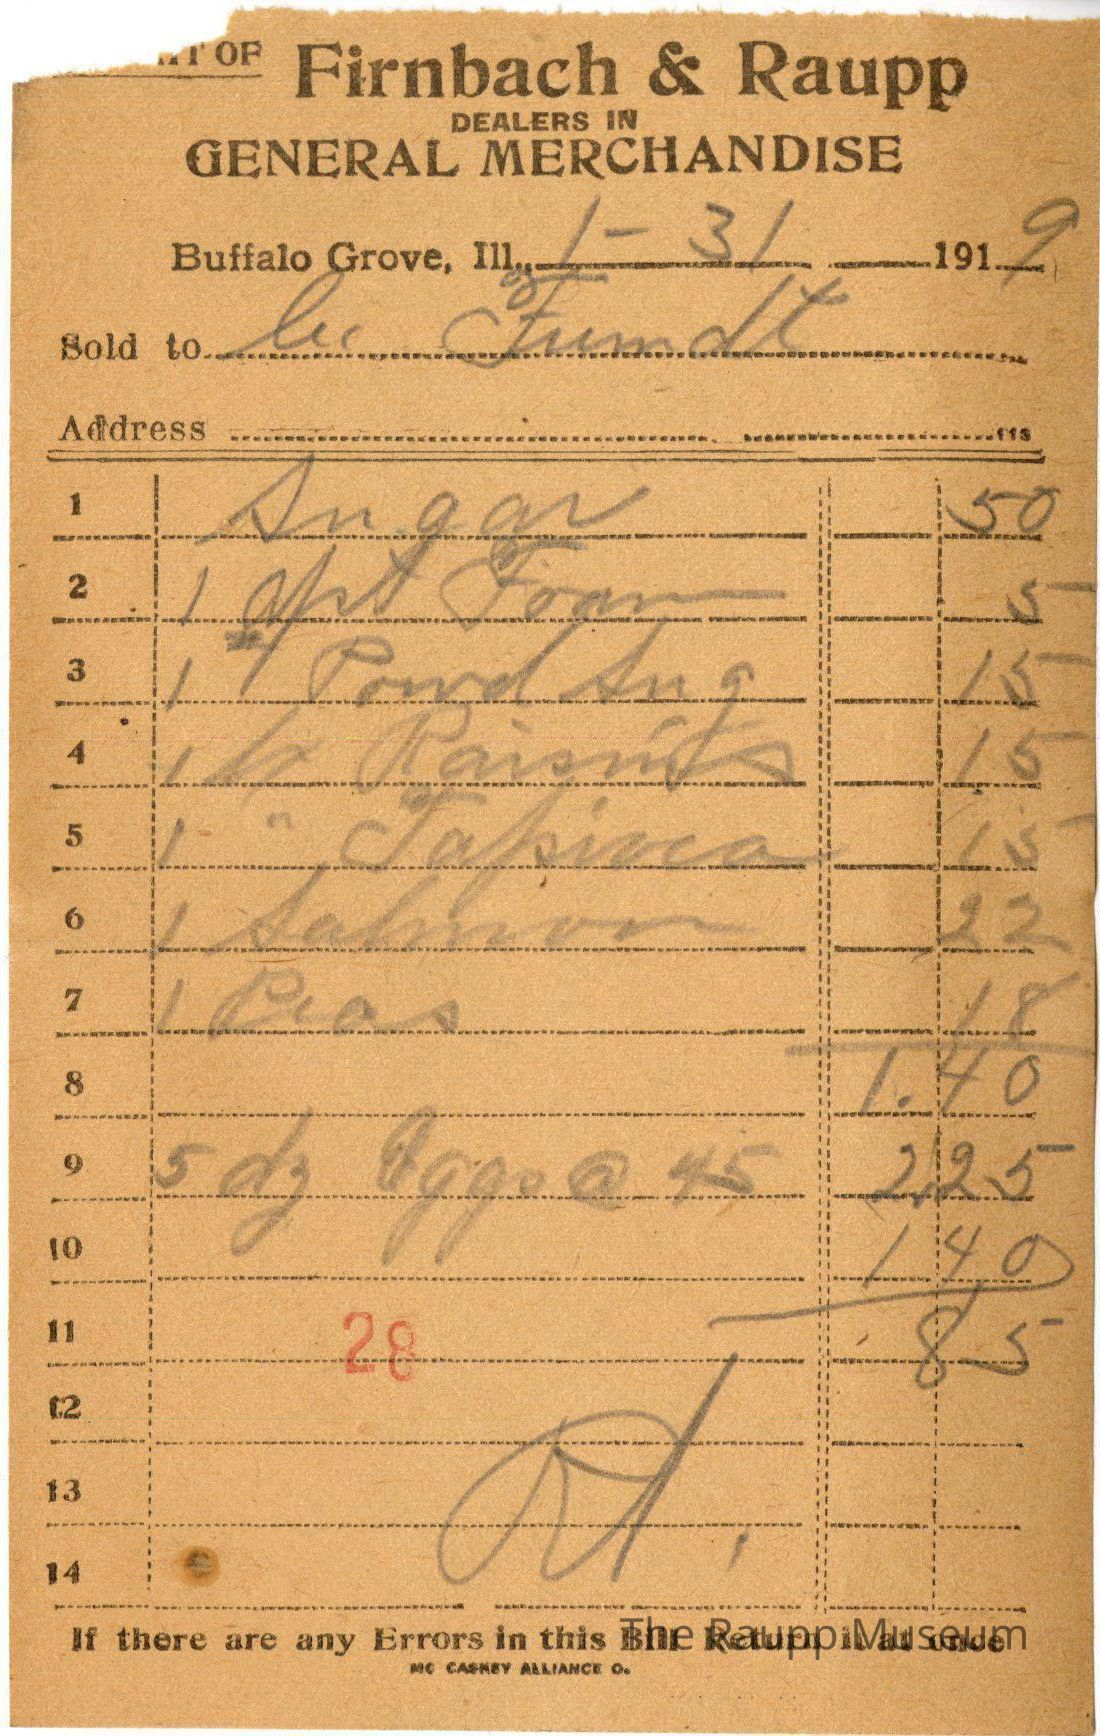 OF Firnbach & Raupp
DEALERS IN
GENERAL MERCHANDISE
Buffalo Grove, Ill., 1-31 1919
Sold to
Address 113
1 Sugar 50
2 1 Foam 5
3 1 " Powd Sug 15
4 1 Raisins 15
5 1 " Tapioca 15
6 1 Salmon 22
7 1 Peas 18
8 1.40
9 5 dz Eggs @ 45 2.25
10 1 40
11 28 85
12
13
14
If there are any Errors in this Bill Return it at once
The Raupp Museum
MC CASKEY ALLIANCE O.